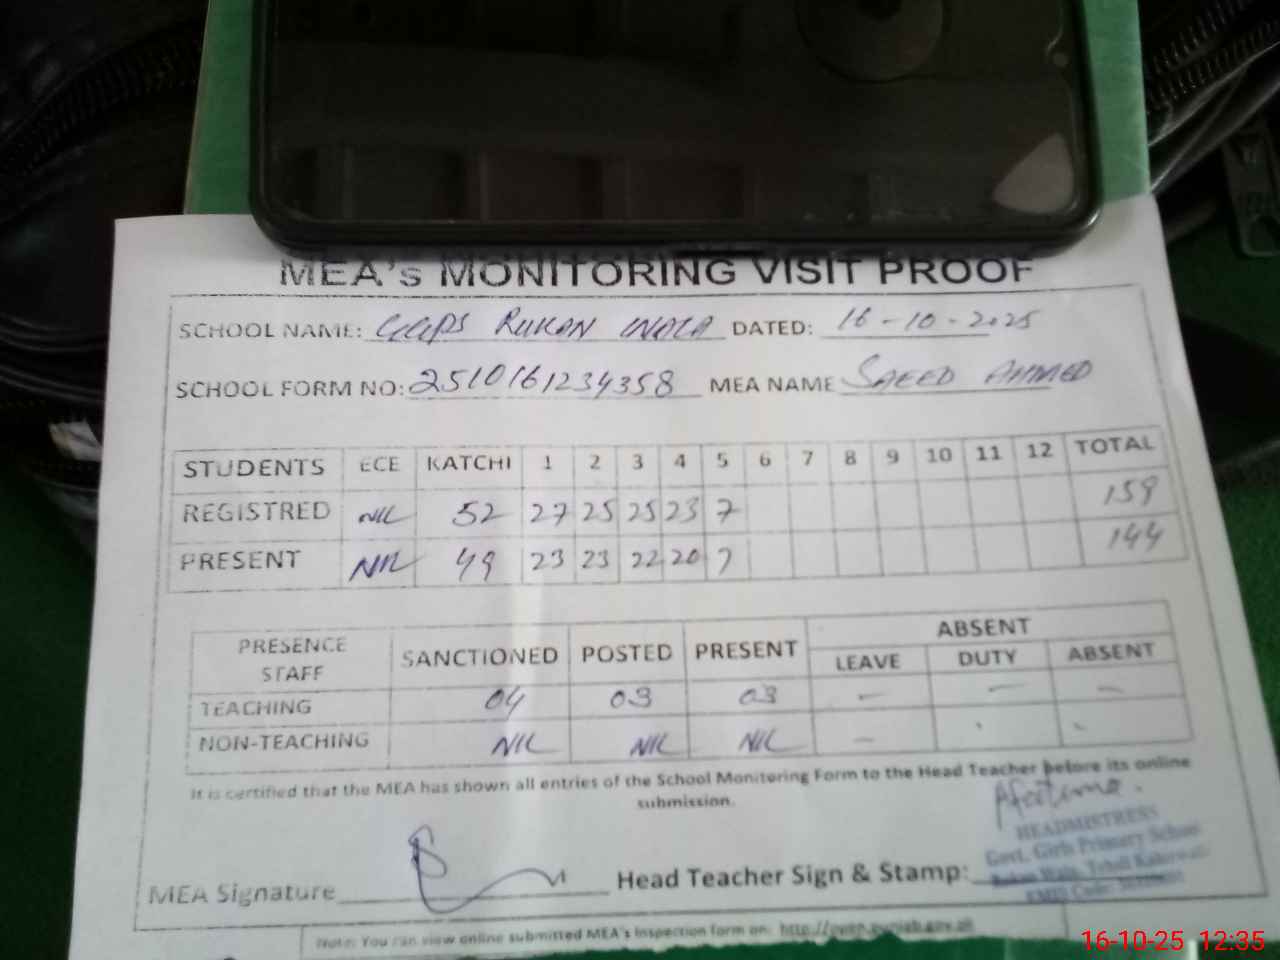 MEA's MONITORING VISIT PROOF
SCHOOL NAME: GGPS RUKAN WALA DATED: 16-10-2025
SCHOOL FORM NO: 2510161234358 MEA NAME SAEED AHMED
STUDENTS ECE KATCHI 1 2 3 4 5 6 7 8 9 10 11 12 TOTAL
REGISTRED NIL 52 27 25 25 23 7 159
PRESENT NIL 49 23 23 22 20 7 144
PRESENCE STAFF SANCTIONED POSTED PRESENT ABSENT
LEAVE DUTY ABSENT
TEACHING 04 03 03 — — —
NON-TEACHING NIL NIL NIL —
It is certified that the MEA has shown all entries of the School Monitoring Form to the Head Teacher before its online
submission.
HEADMISTRESS
Govt. Girls Primary School
MEA Signature Head Teacher Sign & Stamp:
Note: You can view online submitted MEA's inspection form on: http://open.punjab.gov.pk
16-10-25 12:35